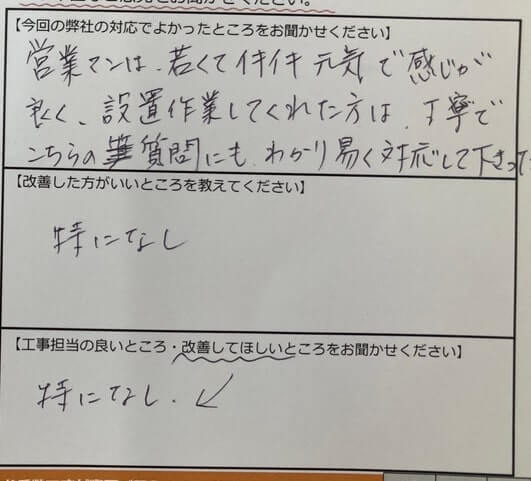 【今回の弊社の対応でよかったところをお聞かせください】
営業マンは、若くてイキイキ元気で感じが
良く、設置作業してくれた方は、丁寧で
こちらの質問にも、わかり易く対応して下さった
【改善した方がいいところを教えてください】
特になし
【工事担当の良いところ・改善してほしいところをお聞かせください】
特になし.